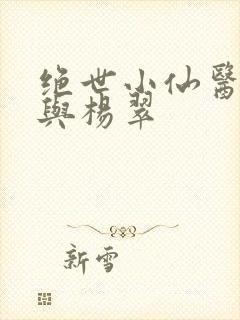 绝世小仙醫
與楊翠
新雪